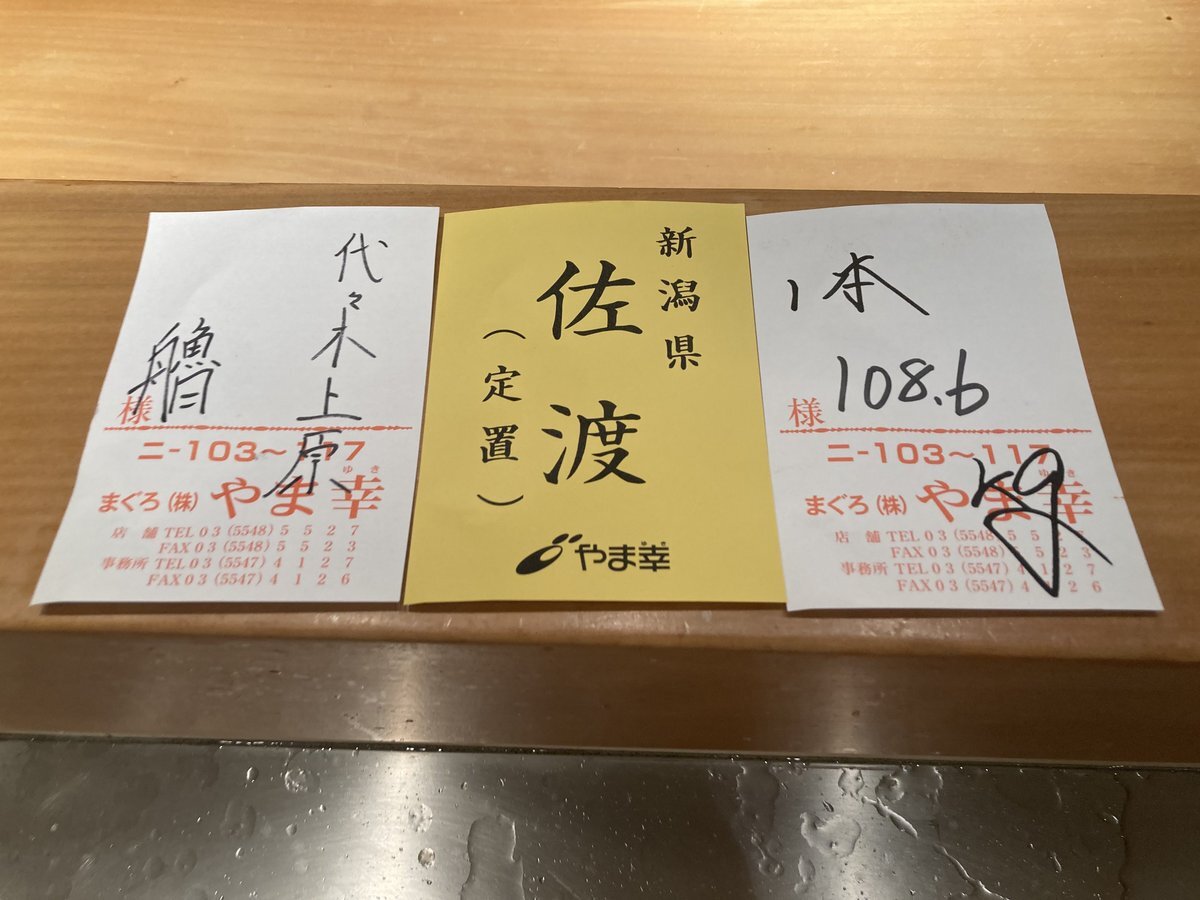 代々木上原
艪
様
ニ-103〜117
まぐろ(株)やま幸
ゆき
店舗 TEL03(5548)5527
FAX03(5548)5523
事務所 TEL03(5547)4127
FAX03(5547)4126
新潟県
佐渡
(定置)
やま幸
ゆき
1本
108.6
kg
様
ニ-103〜117
まぐろ(株)やま幸
ゆき
店舗 TEL03(5548)5527
FAX03(5548)5523
事務所 TEL03(5547)4127
FAX03(5547)4126